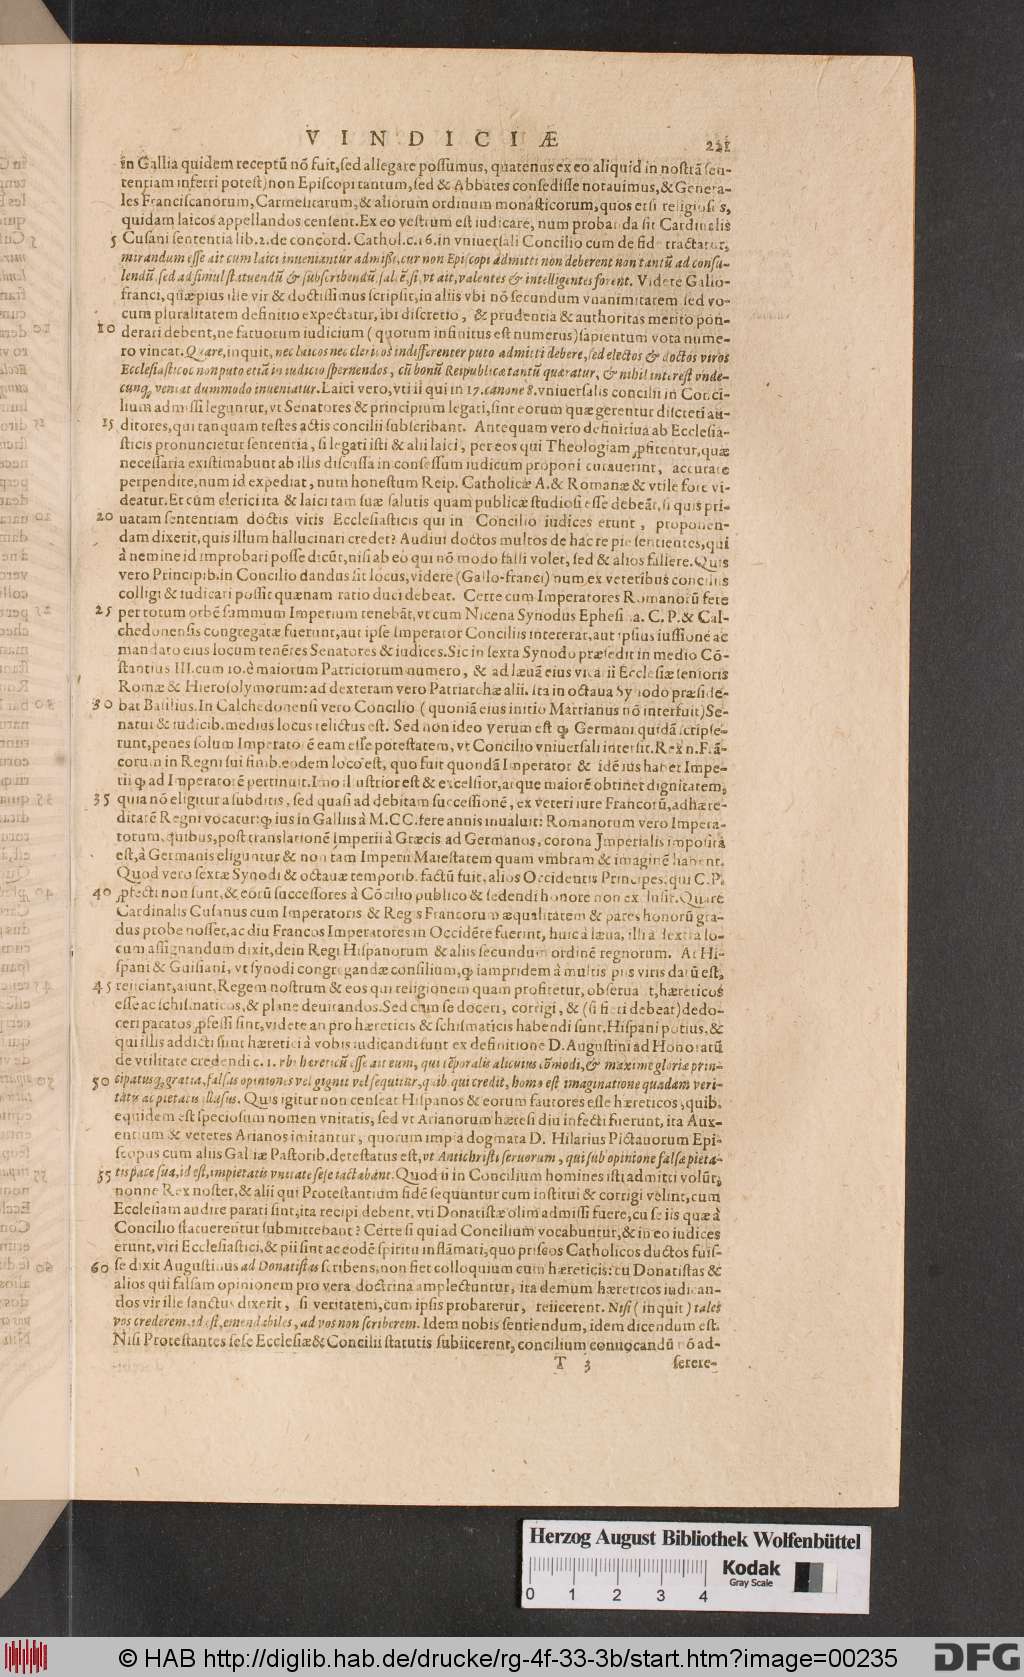 VINDICIÆ 221
in Gallia quidem receptũ nõ fuit, sed allegare possumus, quatenus ex eo aliquid in nostrã sen-
tentiam inferri potest) non Episcopi tantum, sed & Abbates consedisse notauimus, & Genera-
les Franciscanorum, Carmelitarum, & aliorum ordinum monasticorum, quos etsi religiosos,
quidam laicos appellandos censent. Ex eo vestrum est iudicare, num probanda sit Cardinalis
5 Cusani sententia lib. 2. de concord. Cathol. c. 16. in vniuersali Concilio cum de fide tractatur,
mirandum esse ait cum laici inueniantur admissi, cur non Episcopi admitti non deberent non tantũ ad consu-
lendũ, sed ad simul statuendũ & subscribendũ, sal. ẽ, si, vt ait, valentes & intelligentes forent. Videte Galio-
franci, quæ pius ille vir & doctissimus scripsit, in aliis vbi nõ secundum vnanimitatem sed vo-
cum pluralitatem definitio expectatur, ibi discretio, & prudentia & authoritas merito pon-
10 derari debent, ne fatuorum iudicium (quorum infinitus est numerus) sapientum vota nume-
ro vincat. Quare, inquit, nec laicos nec clericos indifferenter puto admitti debere, sed electos & doctos viros
Ecclesiasticos non puto etiã in iudicio spernendos, cũ bonũ Reipublicæ tantũ quæratur, & nihil interest vnde-
cunq; veniat dummodo inueniatur. Laici vero, vti ii qui in 17. canone 8. vniuersalis concilii in Conci-
lium admissi leguntur, vt Senatores & principium legati, sint eorum quæ gerentur discreti au-
15 ditores, qui tanquam testes actis concilii subscribant. Antequam vero definitiua ab Ecclesia-
sticis pronuncietur sententia, si legati isti & alii laici, per eos qui Theologiam ꝓfitentur, quæ
necessaria existimabunt ab illis discussa in consessum iudicum proponi curauerint, accurate
perpendite, num id expediat, num honestum Reip. Catholicæ A. & Romanæ & vtile fore vi-
deatur. Et cùm clerici ita & laici tam suæ salutis quam publicæ studiosi esse debeãt, si quis pri-
20 uatam sententiam doctis viris Ecclesiasticis qui in Concilio iudices erunt, proponen-
dam dixerit, quis illum hallucinari credet? Audiui doctos multos de hac re præsentientes, qui
à nemine id improbari posse dicũt, nisi ab eo qui nõ modo falli volet, sed & alios fallere. Quis
vero Principib. in Concilio dandus sit locus, videre (Gallo-franci) num ex veteribus conciliis
colligi & iudicari possit quænam ratio duci debeat. Certe cum Imperatores Romanorũ fere
25 per totum orbẽ summum Imperium tenebãt, vt cum Nicena Synodus Ephesina. C. P. & Cal-
chedonensis congregatæ fuerunt, aut ipse Imperator Conciliis intererat, aut ipsius iussione ac
mandato eius locum tenẽtes Senatores & iudices. Sic in sexta Synodo præsedit in medio Cõ-
stantius III. cum 10. è maiorum Patriciorum numero, & ad læuã eius vicarii Ecclesiæ senioris
Romæ & Hierosolymorum: ad dexteram vero Patriarchæ alii. Ita in octaua Synodo præside-
30 bat Basilius. In Calchedonensi vero Concilio (quoniã eius initio Martianus nõ interfuit) Se-
natui & iudicib. medius locus relictus est. Sed non ideo verum est ꝙ Germani quidã scripse-
runt, penes solum Imperatorẽ eam esse potestatem, vt Concilio vniuersali intersit. Rex n. Frã-
corum in Regni sui finib. eodem loco est, quo fuit quondã Imperator & idẽ ius habet Impe-
rii ꝙ ad Imperatorẽ pertinuit. Imo illustrior est & excelsior, atque maiorẽ obtinet dignitatem,
35 quia nõ eligitur a subditis, sed quasi ad debitam successionẽ, ex veteri iure Francorũ, ad hære-
ditatẽ Regni vocatur: ꝙ ius in Galliis à M. CC. fere annis inualuit: Romanorum vero Impera-
torum, quibus, post translationẽ Imperii à Græcis ad Germanos, corona Imperialis imposita
est, à Germanis eliguntur & non tam Imperii Maiestatem quam vmbram & imaginẽ habent.
Quod vero sextæ Synodi & octauæ temporib. factũ fuit, alios Occidentis Principes, qui C. P.
40 ꝓfecti non sunt, & eorũ successores à Cõcilio publico & sedendi honore non exclusit. Quare
Cardinalis Cusanus cum Imperatoris & Regis Francorum æqualitatem & pares honorũ gra-
dus probe nosset, ac diu Francos Imperatores in Occidẽte fuerint, huic à læua, illi à dextra lo-
cum assignandum dixit, dein Regi Hispanorum & aliis secundum ordinẽ regnorum. At Hi-
spani & Guisiani, vt synodi congregandæ consilium, ꝙ iampridem à multis piis viris datũ est,
45 reiiciant, aiunt, Regem nostrum & eos qui religionem quam profitetur, obseruant, hæreticos
esse ac schismaticos, & plane deuitandos. Sed cùm se doceri, corrigi, & (si fieri debeat) dedo-
ceri paratos ꝓfessi sint, videte an pro hæreticis & schismaticis habendi sunt. Hispani potius, &
qui illis addicti sunt hæretici à vobis iudicandi sunt ex definitione D. Augustini ad Honoratũ
de vtilitate credendi c. 1. vbi hereticũ esse ait eum, qui tẽporalis alicuius cõmodi, & maxime gloriæ prin-
50 cipatusq; gratia, falsas opiniones vel gignit vel sequitur, quib. qui credit, homo est imaginatione quadam veri-
tatis ac pietatis illusus. Quis igitur non censeat Hispanos & eorum fautores esse hæreticos, quib.
equidem est speciosum nomen vnitatis, sed vt Arianorum hæresi diu infecti fuerunt, ita Aux-
entium & veteres Arianos imitantur, quorum impia dogmata D. Hilarius Pictauorum Epi-
scopus cum aliis Galliæ Pastorib. detestatus est, vt Antichristi seruorum, qui sub opinione falsæ pieta-
55 tis pace sua, id est, impietatis vnitate sese iactabãnt. Quod si in Concilium homines isti admitti volũt,
nonne Rex noster, & alii qui Protestantium fidẽ sequuntur cum institui & corrigi velint, cum
Ecclesiam audire parati sint, ita recipi debent, vti Donatistæ olim admissi fuere, cũ se iis quæ à
Concilio statuerentur submittebant? Certe si qui ad Concilium vocabuntur, & in eo iudices
erunt, viri Ecclesiastici, & pii sint ac eodẽ spiritu inflãmati, quo priscos Catholicos ductos fuis-
60 se dixit Augustinus ad Donatistas scribens, non fiet colloquium cum hæreticis: cũ Donatistas &
alios qui falsam opinionem pro vera doctrina amplectuntur, ita demum hæreticos iudican-
dos vir ille sanctus dixerit, si veritatem, cum ipsis probaretur, reiicerent. Nisi (inquit) tales
vos crederem, id est, emendabiles, ad vos non scriberem. Idem nobis sentiendum, idem dicendum est.
Nisi Protestantes sese Ecclesiæ & Concilii statutis subiicerent, concilium conuocandũ nõ ad-
T 3 serere-
Herzog August Bibliothek Wolfenbüttel
0 1 2 3 4
Kodak
Gray Scale
© HAB http://diglib.hab.de/drucke/rg-4f-33-3b/start.htm?image=00235
DFG